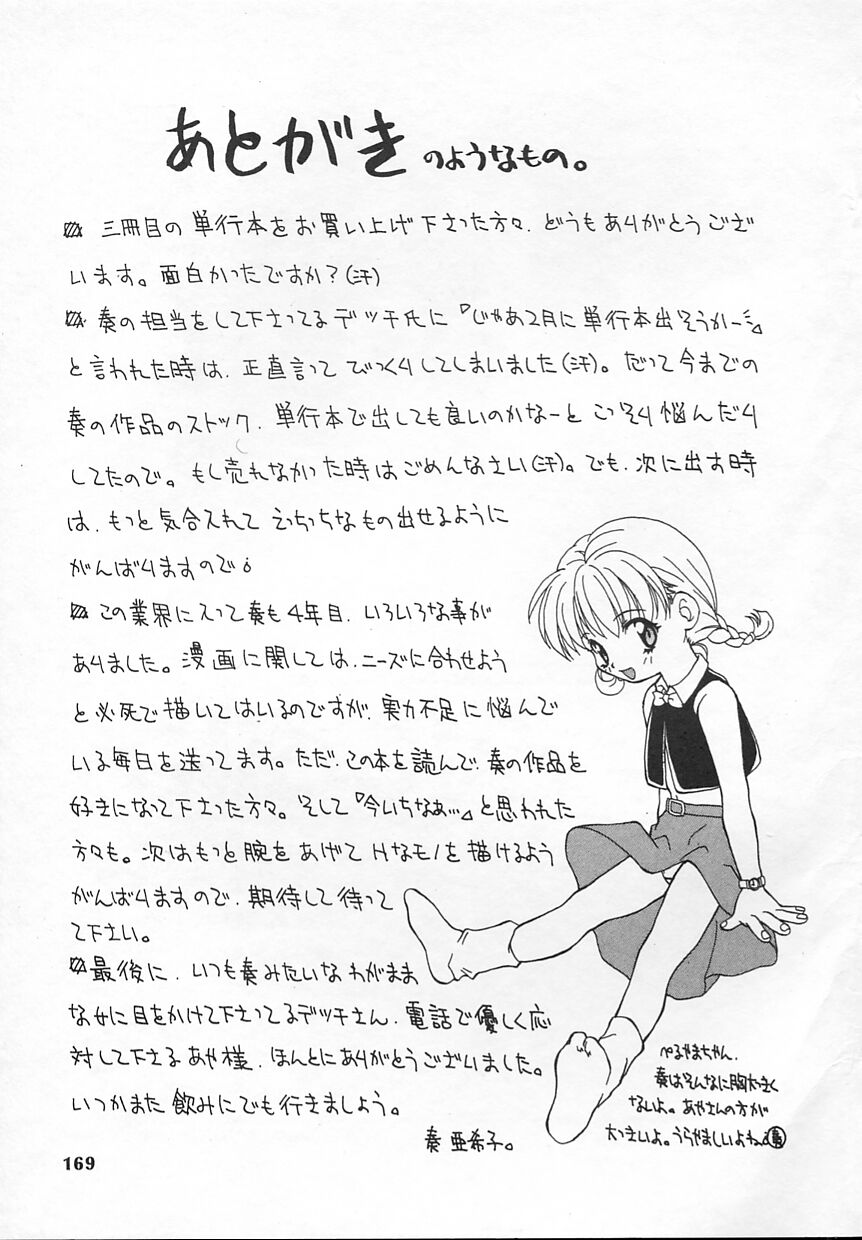 あとがきのようなもの。
三冊目の単行本をお買い上げ下さった方々、どうもありがとうござ
います。面白かったですか？(汗)
奏の担当をして下さってるデッチ氏に『じゃあ2月に単行本出そうかー』
と言われた時は、正直言ってびっくりしてしまいました(汗)。だって今までの
奏の作品のストック、単行本で出しても良いのかなーとこっそり悩んだり
してたので。もし売れなかった時はごめんなさい(汗)。でも、次に出す時
は、もっと気合入れてえっちっちなもの出せるように
がんばりますので
この業界に入って奏も4年目、いろいろな事が
ありました。漫画に関しては、ニーズに合わせよう
と必死で描いてはいるのですが、実力不足に悩んで
いる毎日を送ってます。ただ、この本を読んで、奏の作品を
好きになって下さった方々。そして『今いちなぁ…』と思われた
方々も。次はもっと腕をあげてHなモノを描けるよう
がんばりますので、期待して待って
て下さい。
最後に、いつも奏みたいなわがまま
な女に目をかけて下さってるデッチさん、電話で優しく応
対して下さるあや様、ほんとにありがとうございました。
いつかまた飲みにでも行きましょう。
奏 亜希子。
ぺるやまちゃん、
奏はそんなに胸大きく
ないよ。あやさんの方が
大っきいよ。うらやましいよね
169